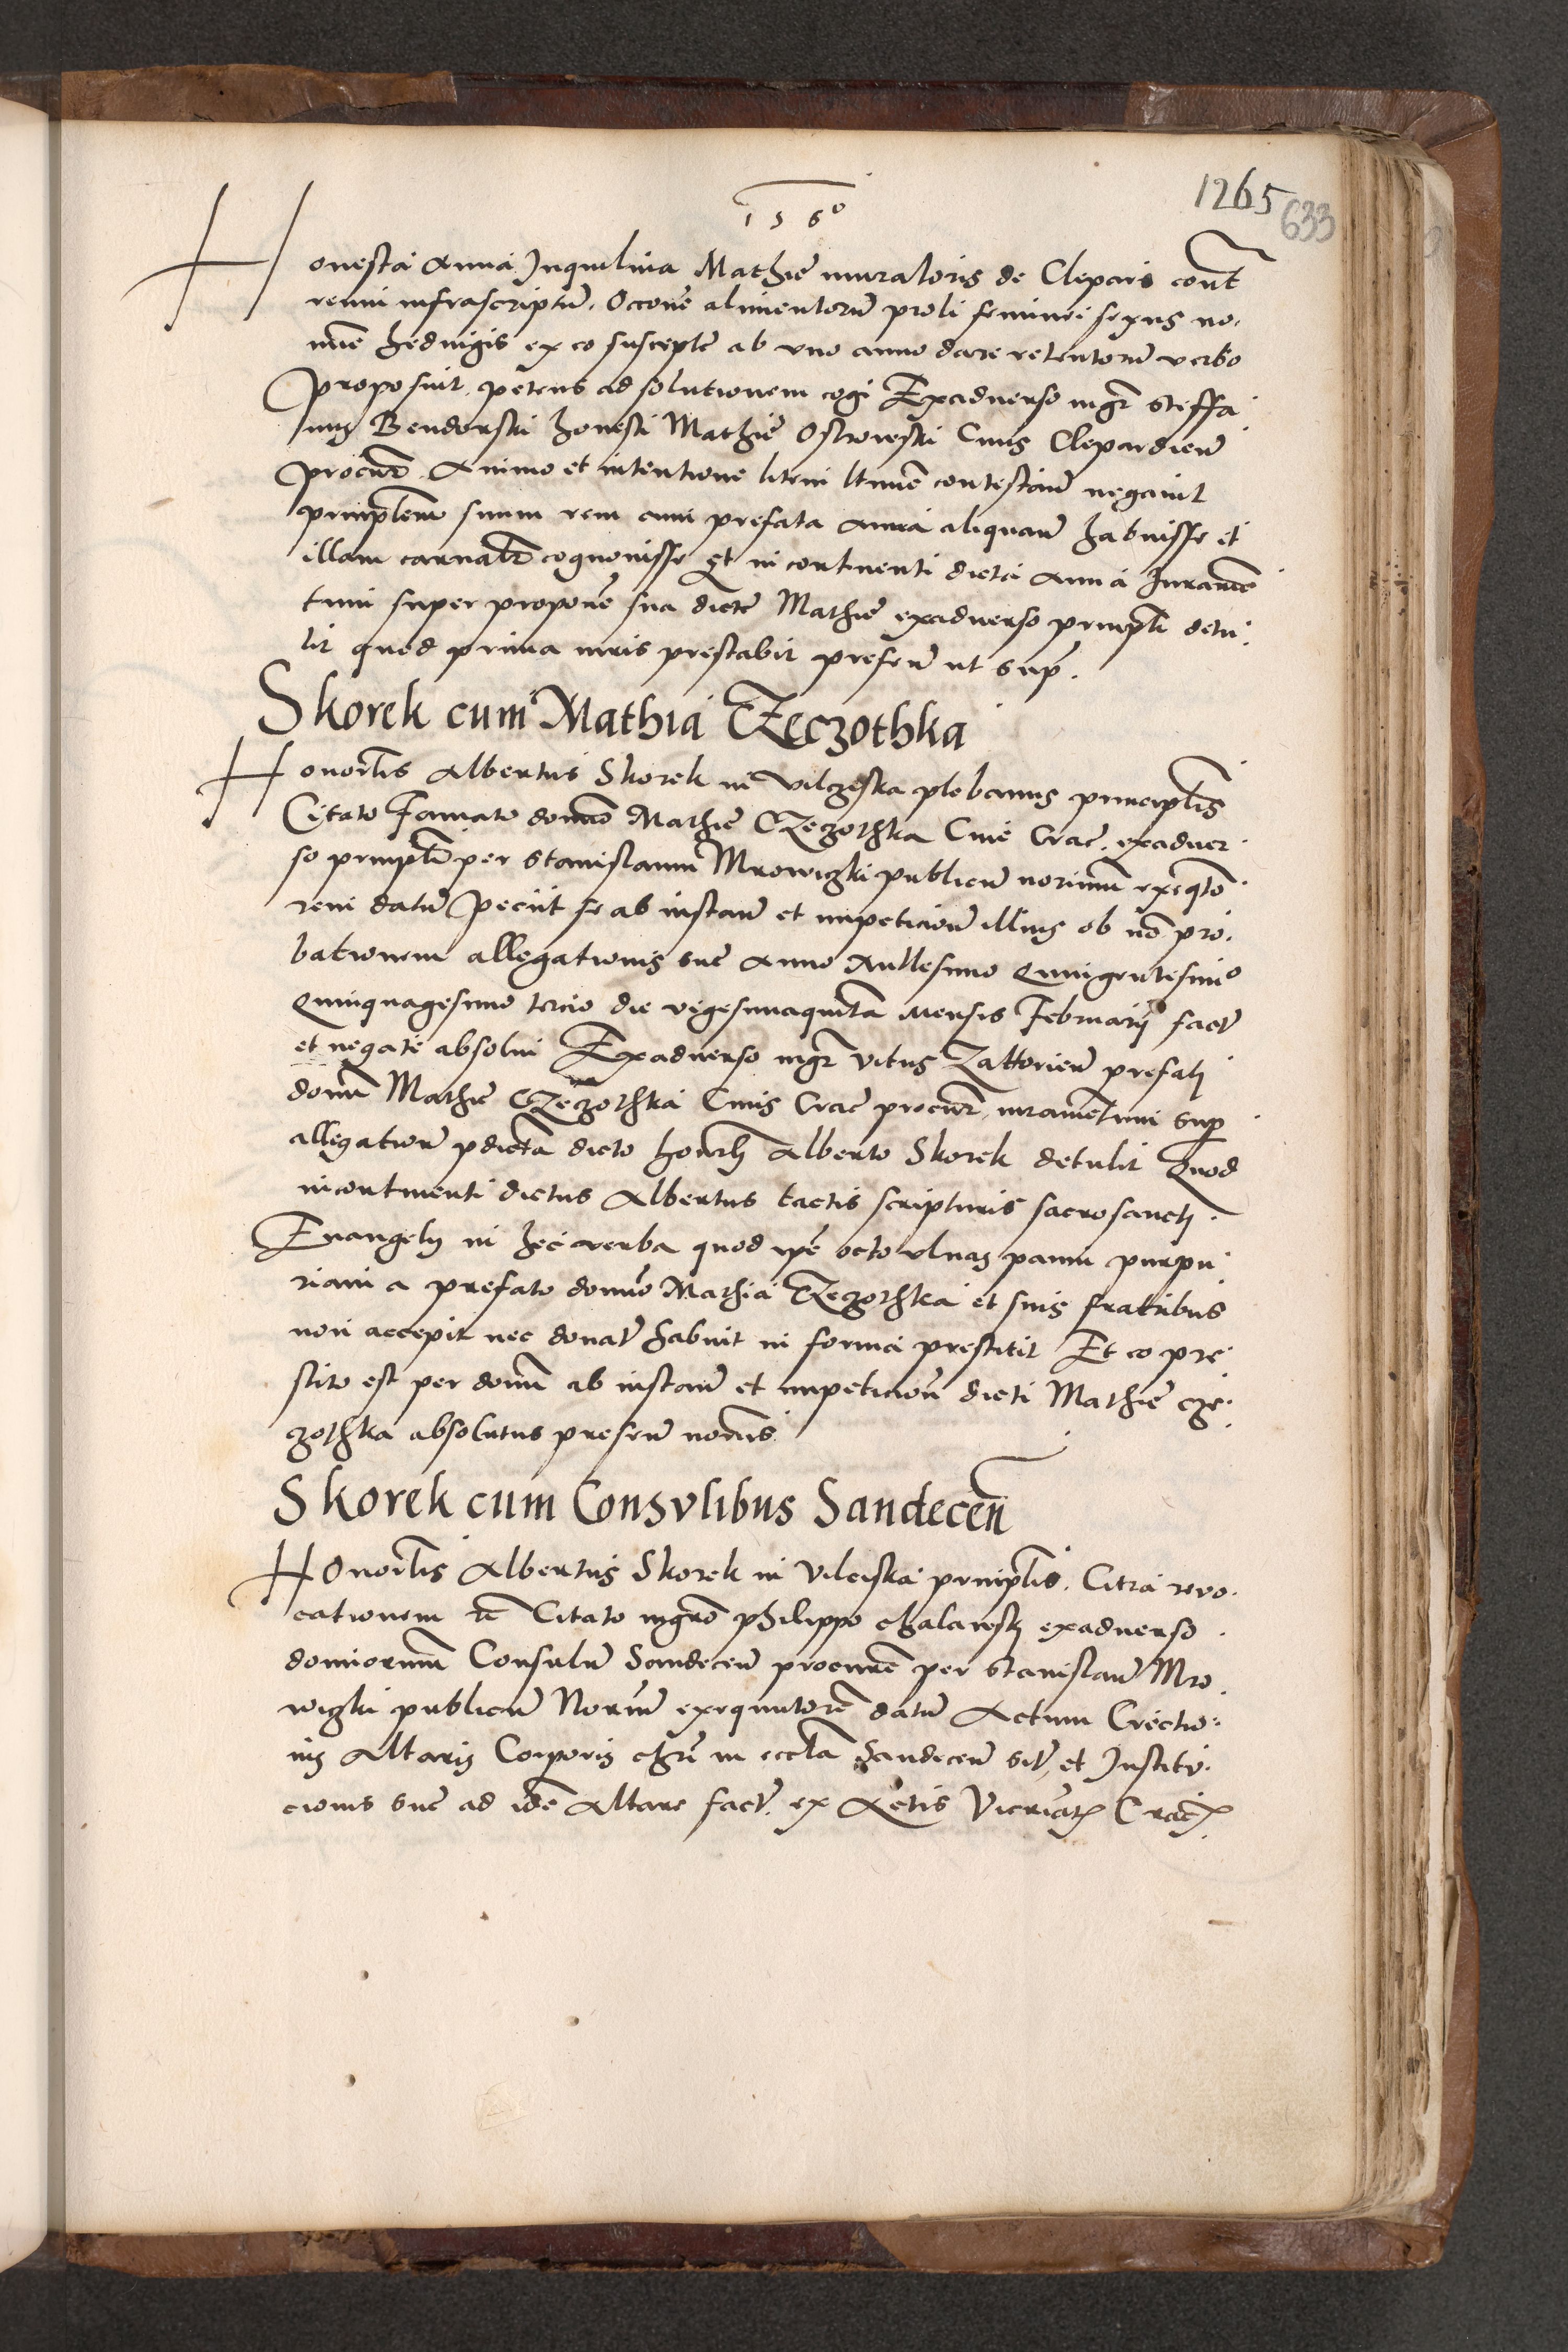 1560
1265
633
Honesta Anna Inquilina Mathie muratoris de Cleparis cont
reum infrascriptum. Occone alimentorum proli feminei sexus no,
mine Hedvigis ex eo suscepte ab vno anno dare retentorum verbo
proposuit, petens ad solutionem cogi Exadverso mgr Steffa
nus Bendorski honesti Mathie Ostrowski Civis Clepardien
procur Animo et intentione litem contestan negavit
prinplem suum rem cum prefata Anna aliquam habuisse et
illam carnalr cognovisse Et in continenti dicta Anna Iuramen
tum super propone sua dicte Mathie exadverso prinpli detu
lit quod prima iuris prestabit presen ut sup.
Skorek cum Mathia CZeczothka
Honorlis Albertus Skorek in Vilczyska plebanus principlis
Citato Famato domno Mathie CZeczothka Cive Crac. exadver
so prinpli per Stanislaum Mrowiczki publicum exeqto
rem datum peciit se ab instan et impeticion illius ob no pro,
bationem allegationis sue Anno Millesimo Quingentesimo
Quinquagesimo tercio die vigesimaquinta mensis Februarij fact
et negate absolvi Exadverso mgr Vitus Zattorien prefati
domni Mathie CZeczothka Civis Crac procur, iuramentum sup
allegation pdicta dicto honorli Alberto Skorek detulit Quod
incontinenti dictus Albertus tactis scripturis sacrosancti
Evangely in hec verba quod ipse octo ulnas panni purpu
riani a prefato domno Mathia CZeczothka et suis fratribus
non accepit nec donat habuit in forma prestitit Et eo pre
stito est per domn ab instan et impeticion dicti Mathie cze,
czothka absolutus presen
Skorek cum Consvlibus Sandecen
HOnorlis Albertus Skorek in Vilciska prinplis. Citra revo,
cationem Citato mgro Philippo exadverso
dominorum Consulum Sandecen procure per Stanislaum Mro,
wiczki publicum exequutore datum Actum Erectio,
nis Altaris Corporis chri in eccla Sandecen sit, et Institu,
cionis sue ad ide Altare fact, ex Actis Vicriat Crac